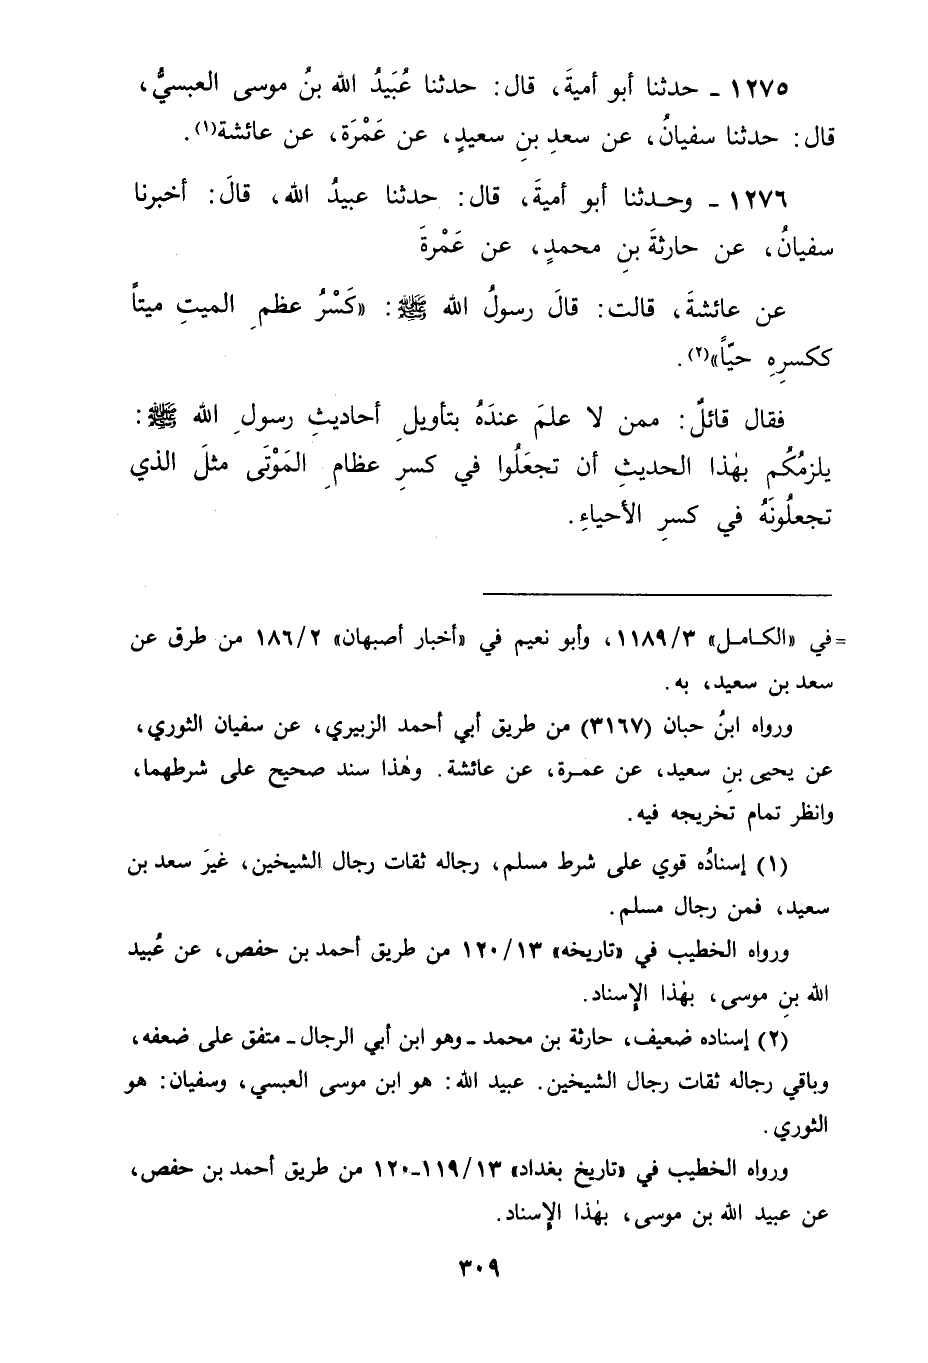 ١٢٧٥ ـ حدثنا أبو أميةَ، قال: حدثنا عُبَيدُ الله بنُ موسى العبسيُّ،
قال: حدثنا سفيانُ، عن سعدِ بنِ سعيدٍ، عن عَمْرَة، عن عائشة(١).
١٢٧٦ ـ وحدثنا أبو أميةَ، قال: حدثنا عبيدُ الله، قالَ: أخبرنا
سفيانُ، عن حارثةَ بنِ محمدٍ، عن عَمْرةَ
عن عائشةَ، قالت: قالَ رسولُ الله ﷺ: «كَسْرُ عظمِ الميتِ ميتاً
ككسرِهِ حيّاً»(٢).
فقال قائلٌ: ممن لا علمَ عندَهُ بتأويلِ أحاديثِ رسولِ الله ﷺ:
يلزمُكُم بهٰذا الحديثِ أن تجعَلُوا في كسرِ عظامِ المَوْتَى مثلَ الذي
تجعلُونَهُ في كسرِ الأحياءِ.
= في «الكامل» ١١٨٩/٣، وأبو نعيم في «أخبار أصبهان» ١٨٦/٢ من طرق عن
سعد بن سعيد، به.
ورواه ابنُ حبان (٣١٦٧) من طريق أبي أحمد الزبيري، عن سفيان الثوري،
عن يحيى بنِ سعيد، عن عمرة، عن عائشة. وهٰذا سند صحيح على شرطهما،
وانظر تمام تخريجه فيه.
(١) إسنادُه قوي على شرط مسلم، رجاله ثقات رجال الشيخين، غيرَ سعد بن
سعيد، فمن رجال مسلم.
ورواه الخطيب في «تاريخه» ١٢٠/١٣ من طريق أحمد بن حفص، عن عُبيد
الله بنِ موسى، بهٰذا الإِسناد.
(٢) إسناده ضعيف، حارثة بن محمد ـ وهو ابن أبي الرجال ـ متفق على ضعفه،
وباقي رجاله ثقات رجال الشيخين. عبيد الله: هو ابن موسى العبسي، وسفيان: هو
الثوري.
ورواه الخطيب في «تاريخ بغداد» ١١٩/١٣ـ١٢٠ من طريق أحمد بن حفص،
عن عبيد الله بن موسى، بهٰذا الإِسناد.
٣٠٩